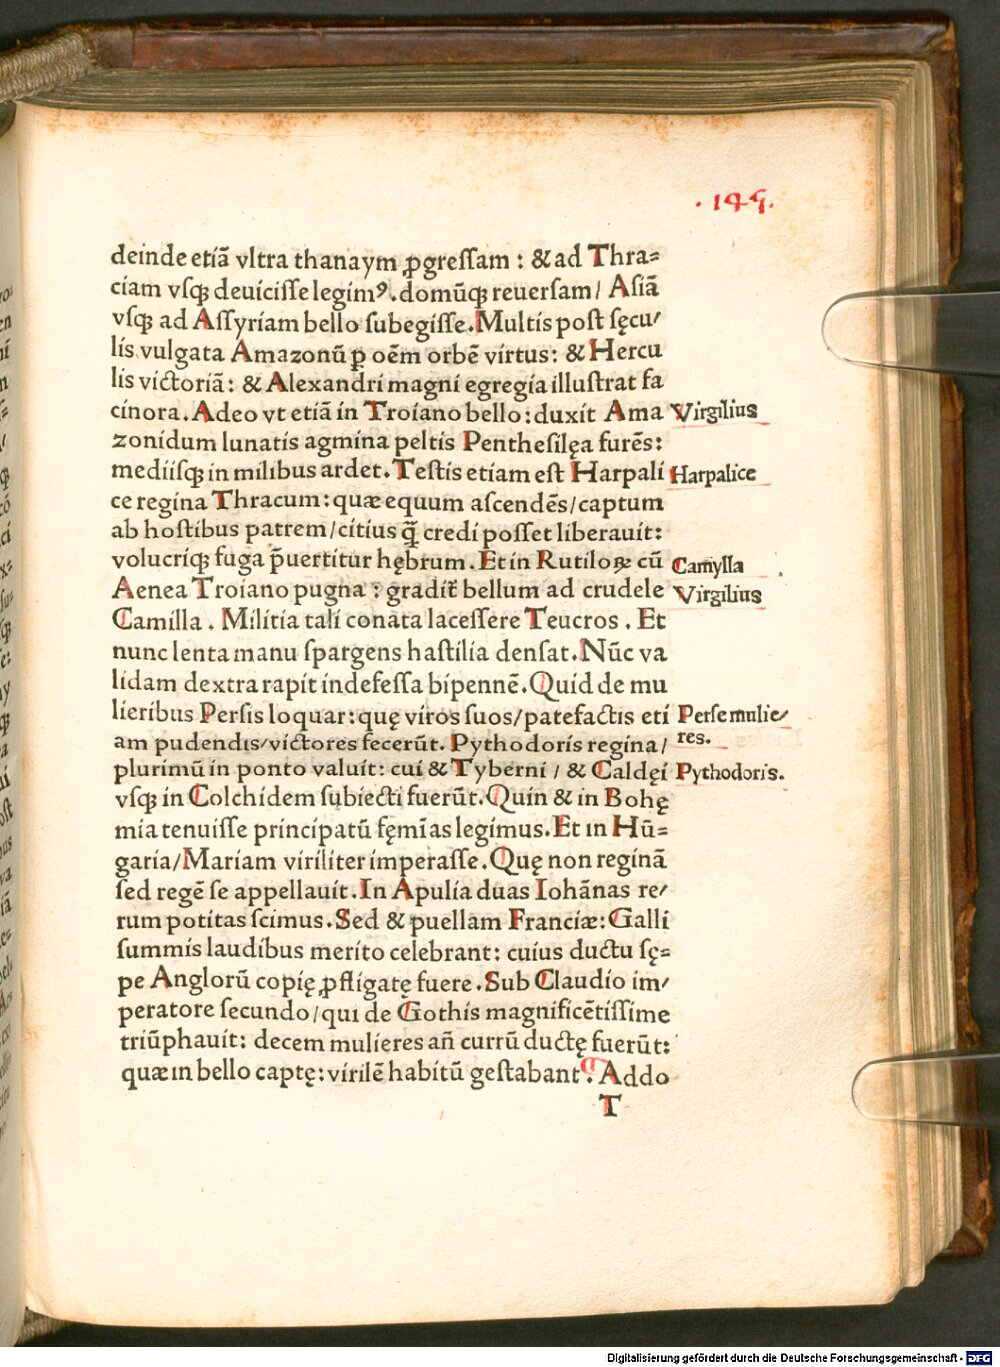 · 145 ·
deinde etiã vltra thanaym ꝓgreſſam : & ad Thra=
ciam vſqꝫ deuiciſſe legimꝰ. domũqꝫ reuerſam/ Aſiã
vſqꝫ ad Aſſyriam bello ſubegiſſe. Multis poſt ſęcu/
lis vulgata Amazonũ ꝑ oẽm orbẽ virtus: & Hercu
lis victoriã: & Alexandri magni egregia illuſtrat fa
cinora. Adeo vt etiã in Troiano bello: duxit Ama
Virgilius
zonidum lunatis agmina peltis Pentheſilęa furẽs:
mediiſqꝫ in milibus ardet. Teſtis etiam eſt Harpali
Harpalice
ce regina Thracum: quæ equum aſcendẽs/ captum
ab hoſtibus patrem/ citius q̃ credi poſſet liberauit:
volucriqꝫ fuga p̃uertitur hębrum. Et in Rutiloꝝ cũ
Camylla
Aenea Troiano pugna : gradit᷑ bellum ad crudele
Virgilius
Camilla. Militia tali conata laceſſere Teucros. Et
nunc lenta manu ſpargens haſtilia denſat. Nũc va
lidam dextra rapit indefeſſa bipennẽ. Quid de mu
lieribus Perſis loquar: quę viros ſuos/ patefactis eti
Perſe mulie/
am pudendis/ victores fecerũt. Pythodoris regina/
res.
plurimũ in ponto valuit: cui & Tyberni / & Caldęi
Pythodoris.
vſqꝫ in Colchidem ſubiecti fuerũt. Quin & in Bohę
mia tenuiſſe principatũ fęmĩas legimus. Et in Hũ=
garia/ Mariam viriliter imperaſſe. Quę non reginã
ſed regẽ ſe appellauit. In Apulia duas Iohãnas re/
rum potitas ſcimus. Sed & puellam Franciæ: Galli
ſummis laudibus merito celebrant: cuius ductu ſę=
pe Anglorũ copię ꝓfligatę fuere. Sub Claudio im/
peratore ſecundo/ qui de Gothis magnificẽtiſſime
triũphauit: decem mulieres añ currũ ductę fuerũt:
quæ in bello captę: virilẽ habitũ geſtabant. Addo
T
Digitalisierung gefördert durch die Deutsche Forschungsgemeinschaft - DFG